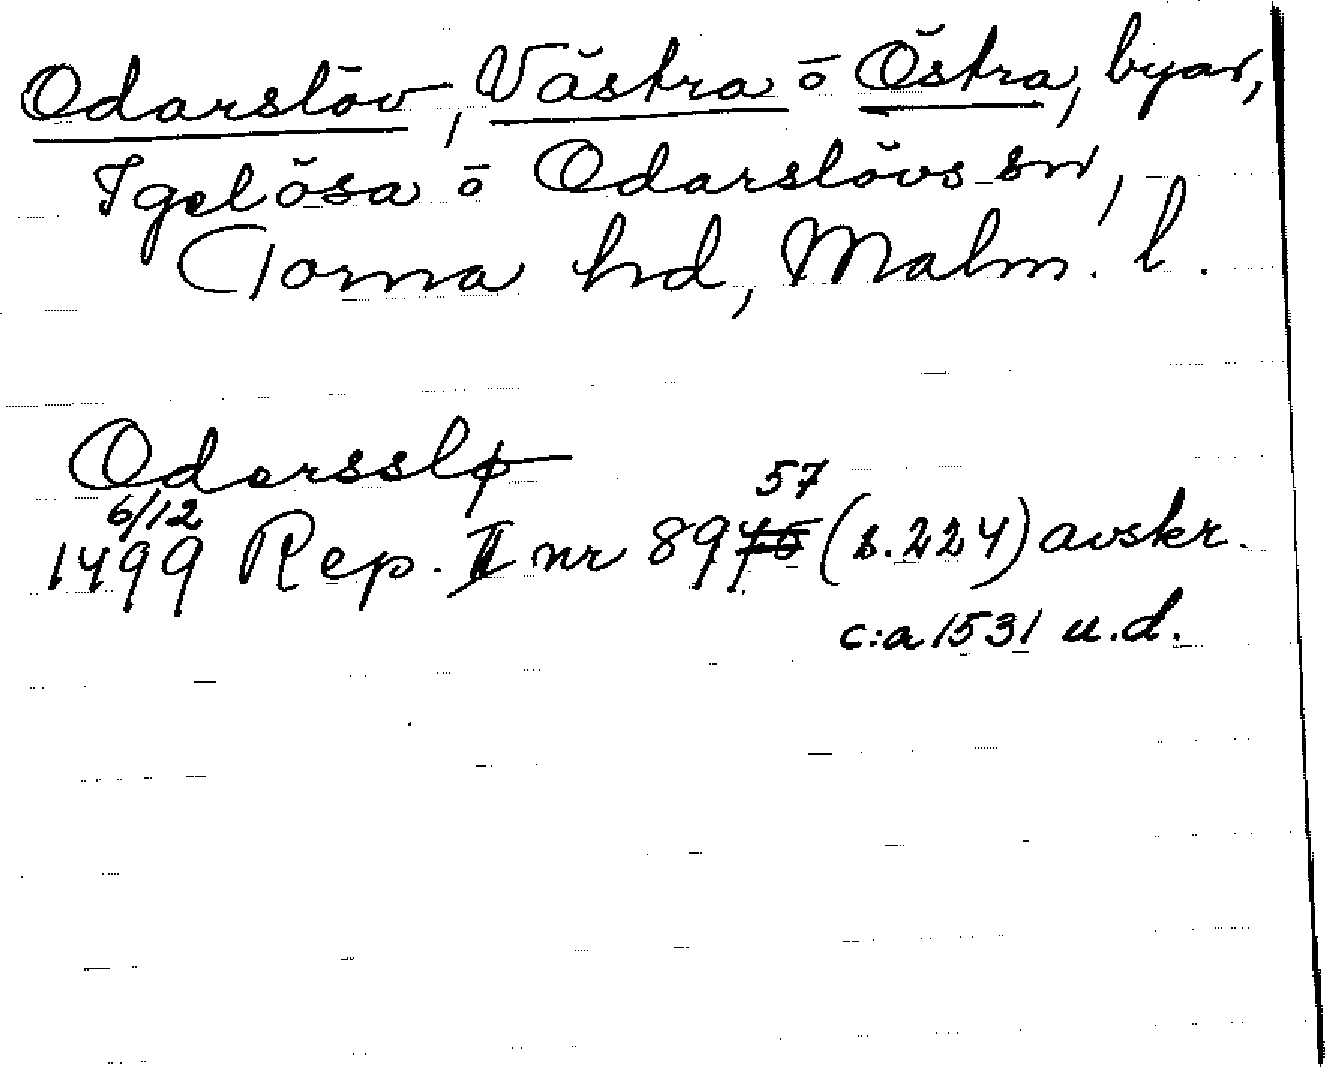 Odarslöv, Västra o Östra, byar,
Igelösa o Odarslövs snr,
Torna hd, Malm. l.
Odersslø
6/12
1499 Rep. II nr 8975 57 (s.224) avskr.
c:a 1531 u.d.